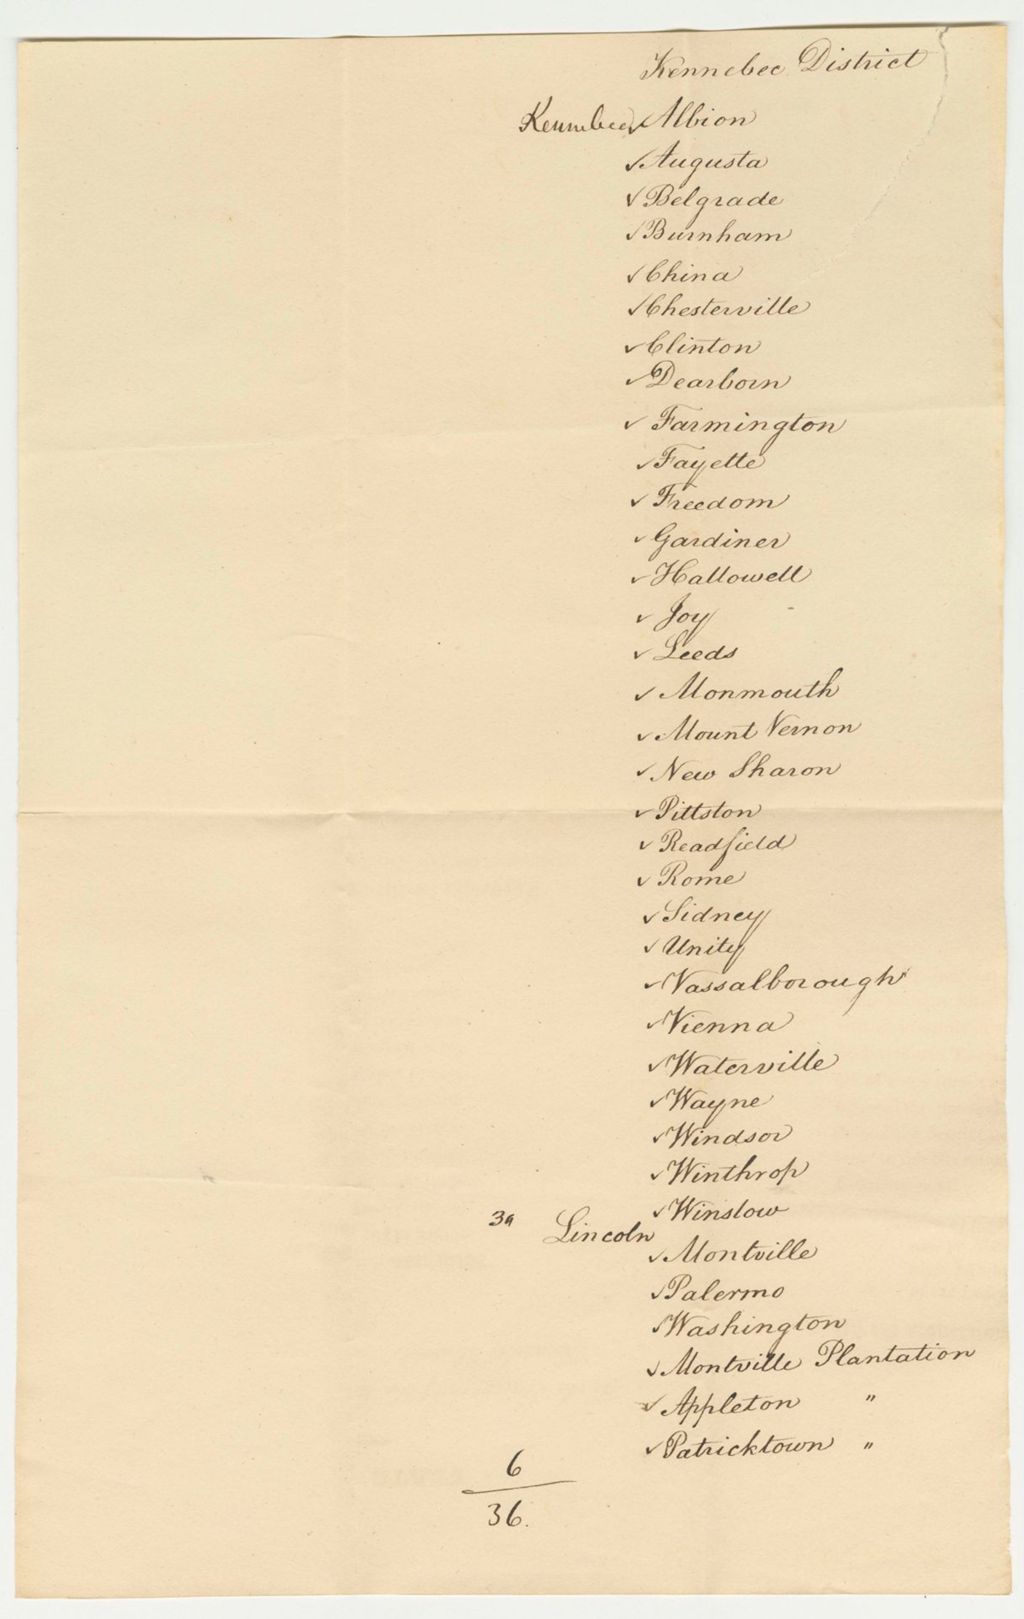 Kennebec District
Kennebec ✓ Albion
✓ Augusta
✓ Belgrade
✓ Burnham
✓ China
✓ Chesterville
✓ Clinton
✓ Dearborn
✓ Farmington
✓ Fayette
✓ Freedom
✓ Gardiner
✓ Hallowell
✓ Joy
✓ Leeds
✓ Monmouth
✓ Mount Vernon
✓ New Sharon
✓ Pittston
✓ Readfield
✓ Rome
✓ Sidney
✓ Unity
✓ Vassalborough
✓ Vienna
✓ Waterville
✓ Wayne
✓ Windsor
✓ Winthrop
30 ✓ Winslow
Lincoln ✓ Montville
✓ Palermo
✓ Washington
✓ Montville Plantation
✓ Appleton "
✓ Patricktown "
6
36.